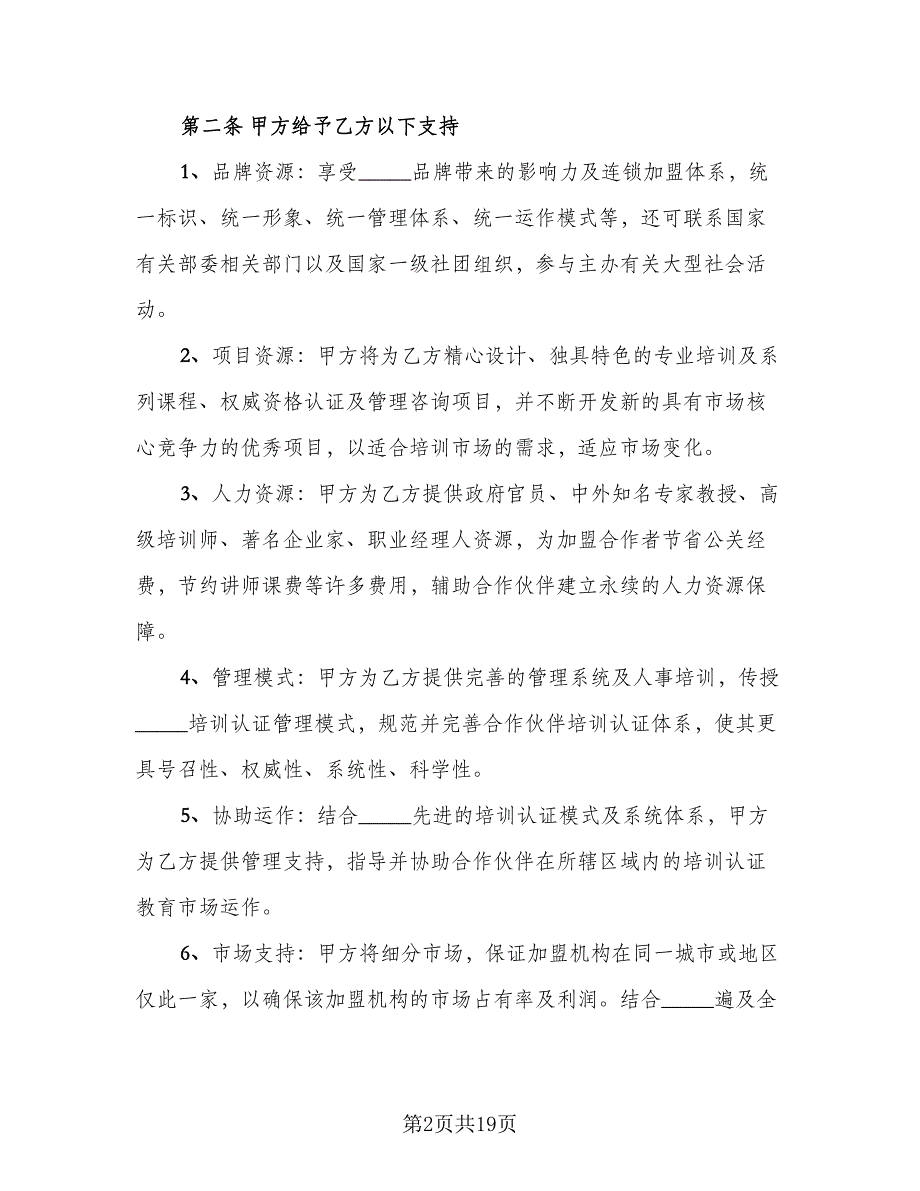 第二条 甲方给予乙方以下支持
1、品牌资源：享受_____品牌带来的影响力及连锁加盟体系，统
一标识、统一形象、统一管理体系、统一运作模式等，还可联系国家
有关部委相关部门以及国家一级社团组织，参与主办有关大型社会活
动。
2、项目资源：甲方将为乙方精心设计、独具特色的专业培训及系
列课程、权威资格认证及管理咨询项目，并不断开发新的具有市场核
心竞争力的优秀项目，以适合培训市场的需求，适应市场变化。
3、人力资源：甲方为乙方提供政府官员、中外知名专家教授、高
级培训师、著名企业家、职业经理人资源，为加盟合作者节省公关经
费，节约讲师课费等许多费用，辅助合作伙伴建立永续的人力资源保
障。
4、管理模式：甲方为乙方提供完善的管理系统及人事培训，传授
_____培训认证管理模式，规范并完善合作伙伴培训认证体系，使其更
具号召性、权威性、系统性、科学性。
5、协助运作：结合_____先进的培训认证模式及系统体系，甲方
为乙方提供管理支持，指导并协助合作伙伴在所辖区域内的培训认证
教育市场运作。
6、市场支持：甲方将细分市场，保证加盟机构在同一城市或地区
仅此一家，以确保该加盟机构的市场占有率及利润。结合_____遍及全
第2页共19页